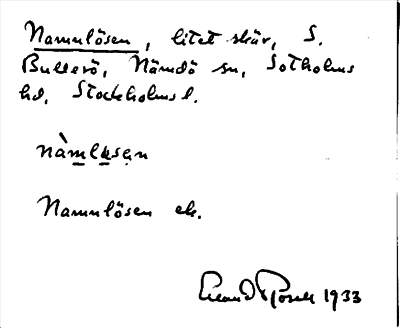 Namnlösen, litet skär, S.
Bullerö, Nämdö sn, Sotholms
hd, Stockholms l.
Namnlösen ek.
Erland Rosell 1933